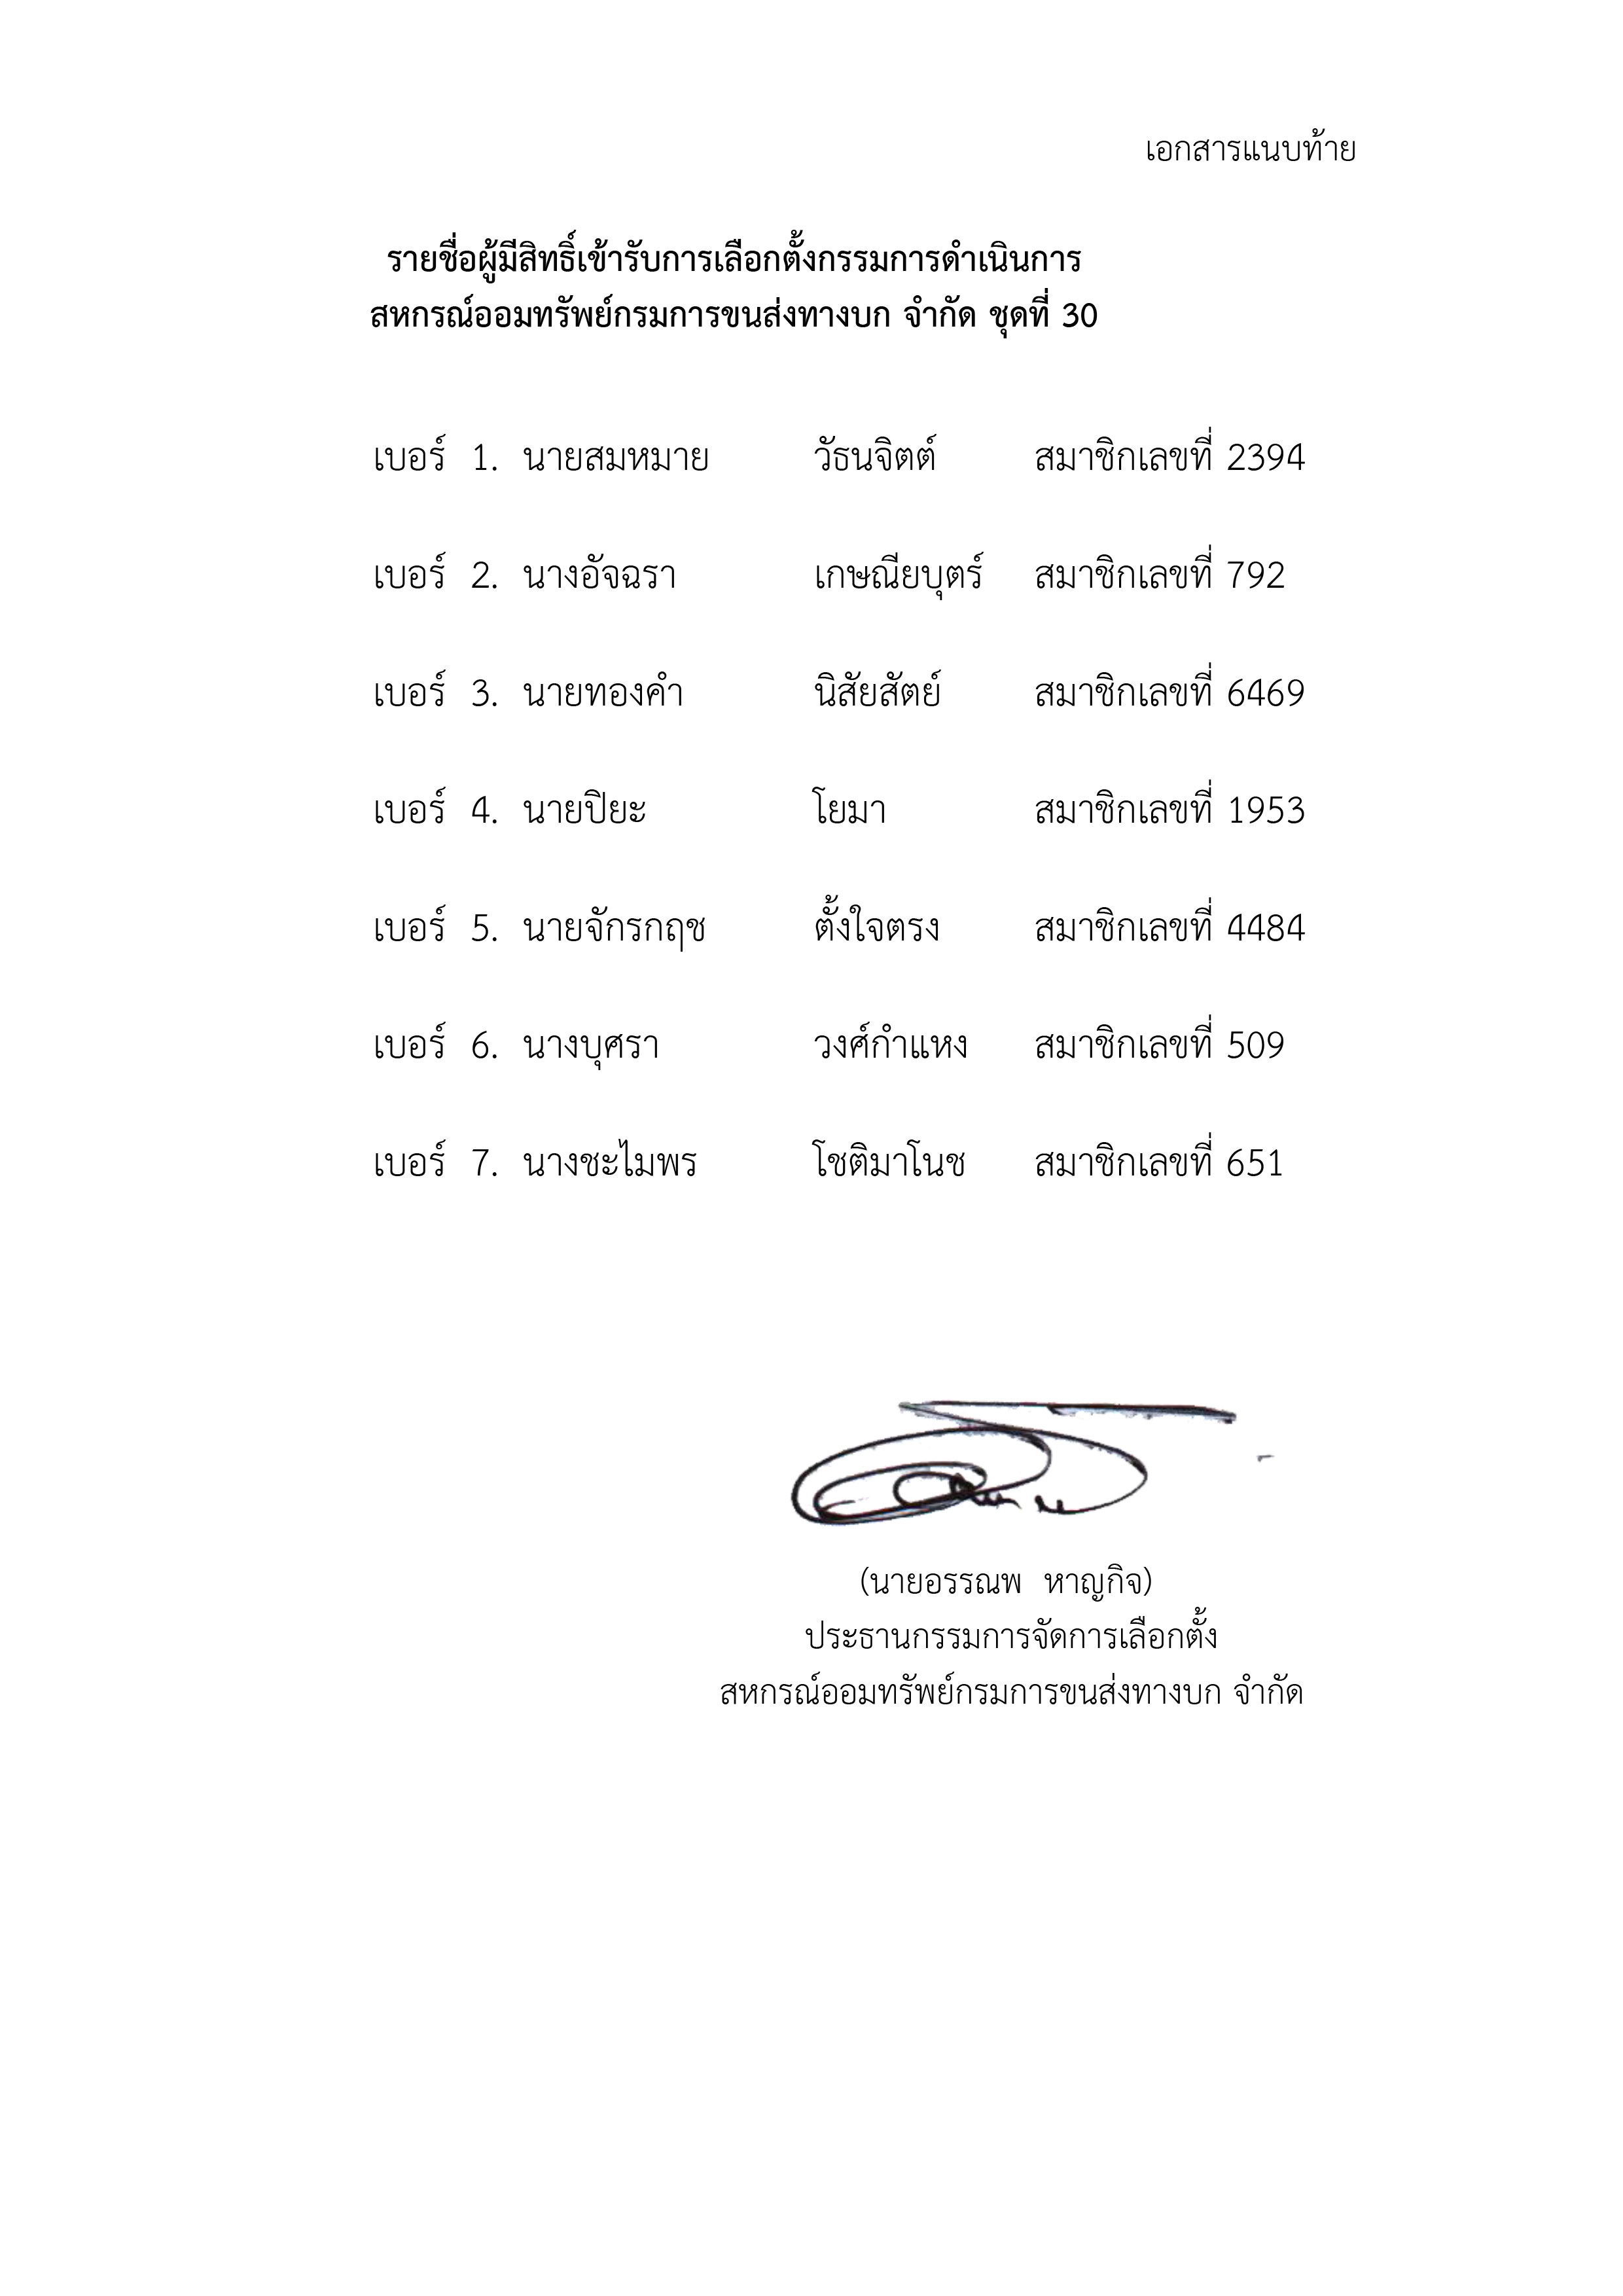 เอกสารแนบท้าย
รายชื่อผู้มีสิทธิ์เข้ารับการเลือกตั้งกรรมการดำเนินการ
สหกรณ์ออมทรัพย์กรมการขนส่งทางบก จำกัด ชุดที่ 30
เบอร์ 1. นายสมหมาย วัธนจิตต์ สมาชิกเลขที่ 2394
เบอร์ 2. นางอัจฉรา เกษณียบุตร์ สมาชิกเลขที่ 792
เบอร์ 3. นายทองคำ นิสัยสัตย์ สมาชิกเลขที่ 6469
เบอร์ 4. นายปิยะ โยมา สมาชิกเลขที่ 1953
เบอร์ 5. นายจักรกฤช ตั้งใจตรง สมาชิกเลขที่ 4484
เบอร์ 6. นางบุศรา วงศ์กำแหง สมาชิกเลขที่ 509
เบอร์ 7. นางชะไมพร โชติมาโนช สมาชิกเลขที่ 651
(นายอรรณพ หาญกิจ)
ประธานกรรมการจัดการเลือกตั้ง
สหกรณ์ออมทรัพย์กรมการขนส่งทางบก จำกัด